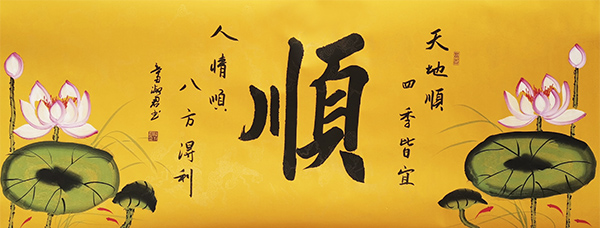 天地順
四季皆宜
順
人情順
八方得利